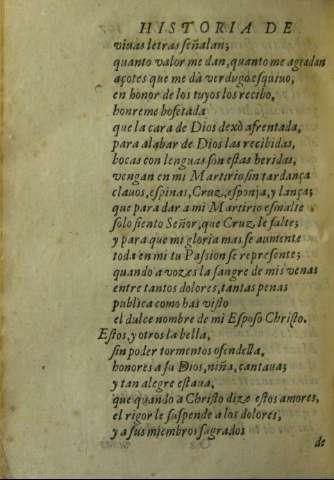 HISTORIA DE
viuas letras señalan;
quanto valor me dan, quanto me agradan
açotes que me dà verdugo esquiuo,
en honor de los tuyos los recibo,
honreme bofetada
que la cara de Dios dexò afrentada,
para alabar de Dios las recibidas,
bocas con lenguas son estas heridas,
vengan en mi Martirio sin tardança
clauos, espinas, Cruz, esponja, y lança;
que para dar a mi Martirio esmalte
solo siento Señor, que Cruz le falte;
y para que mi gloria mas se aumente
toda en mi tu Passion se represente;
quando a vozes la sangre de mis venas
entre tantos dolores, tantas penas
publica como has visto
el dulce nombre de mi Esposo Christo.
Estos, y otros la bella,
sin poder tormentos ofendella,
honores a su Dios, niña, cantaua;
y tan alegre estaua,
que quando a Christo dize estos amores,
el rigor le suspende a los dolores,
y a sus miembros sagrados
de